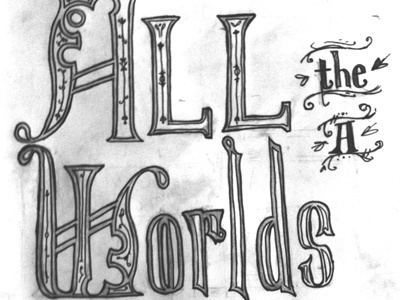 All the
A
Worlds